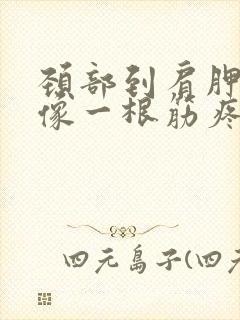 颈部到肩胛
像一根筋疼
四元岛子(四元